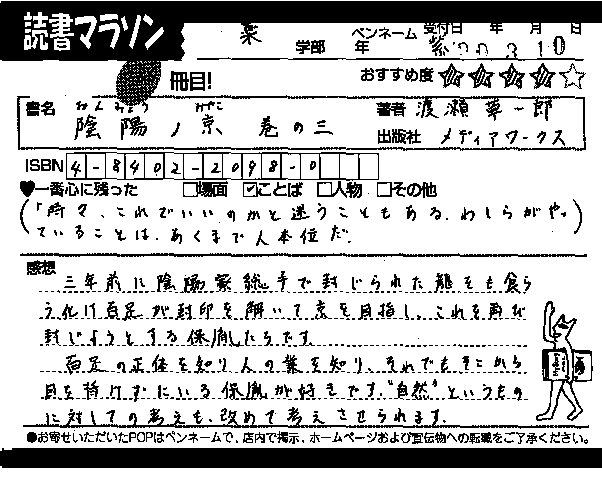 読書マラソン
薬 学部 年 ペンネーム 紫 受付日 年 月 日
'00 3 10
冊目! おすすめ度 ★★★★☆
書名 陰陽ノ京 巻の三 おんみょう みやこ
著者 渡瀬草一郎
出版社 メディアワークス
ISBN 4-8402-2098-0
♥一番心に残った □場面 ☑ことば □人物 □その他
(「時々、これでいいのかと迷うこともある。わしらがやっ
ていることは、あくまで人本位だ.)
感想
三年前に陰陽家総手で封じられた龍をも食ら
う化け百足が封印を解いて京を目指し、これを再び
封じようとする保胤たちです.
百足の正体を知り人の業を知り、それでもそこから
目を背けずにいる保胤が好きです."自然"というもの
に対しての考えも、改めて考えさせられます.
●お寄せいただいたPOPはペンネームで、店内で掲示、ホームページおよび宣伝物への転載をご了承ください。